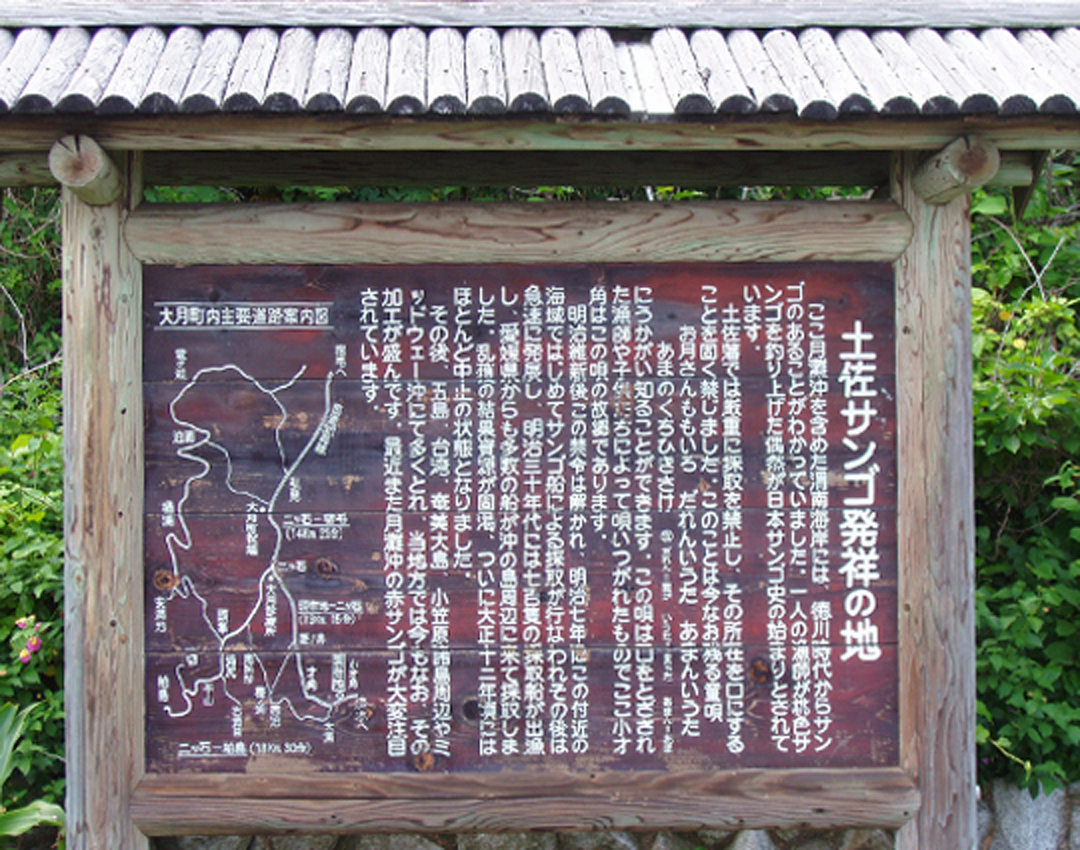 土佐サンゴ発祥の地
ここ月灘沖を含めた渭南海岸には、徳川時代からサン
ゴのあることがわかっていました。一人の漁師が桃色サ
ンゴを釣り上げた偶然が日本サンゴ史の始まりとされて
います。
土佐藩では厳重に採取を禁止し、その所在を口にする
ことを固く禁じました。このことは今なお残る童唄
お月さんももいろ だれんいうた あまんいうた
あまのくちひきさけ
にうかがい知ることができます。この唄は口をとざされ
た漁師や子供たちによって唄いつがれたものでここ小才
角はこの唄の故郷であります。
明治維新後この禁令は解かれ、明治七年にこの付近の
海域ではじめてサンゴ船による採取が行なわれその後は
急速に発展し、明治三十年代には七百隻の採取船が出漁
し、愛媛県からも多数の船が沖の島周辺に来て採取しま
した。乱獲の結果資源が固渇、ついに大正十二年頃には
ほとんど中止の状態となりました。
その後、五島、台湾、奄美大島、小笠原諸島周辺やミ
ッドウェー沖にて多くとれ、当地方では今もなお、その
加工が盛んです。最近また月灘沖の赤サンゴが大変注目
されています。
大月町内主要道路案内図
泊浦
弘見
大月町役場
二ッ石
(14Km 25分)
二ッ石
柏島
二ッ石―柏島(18Km 30分)